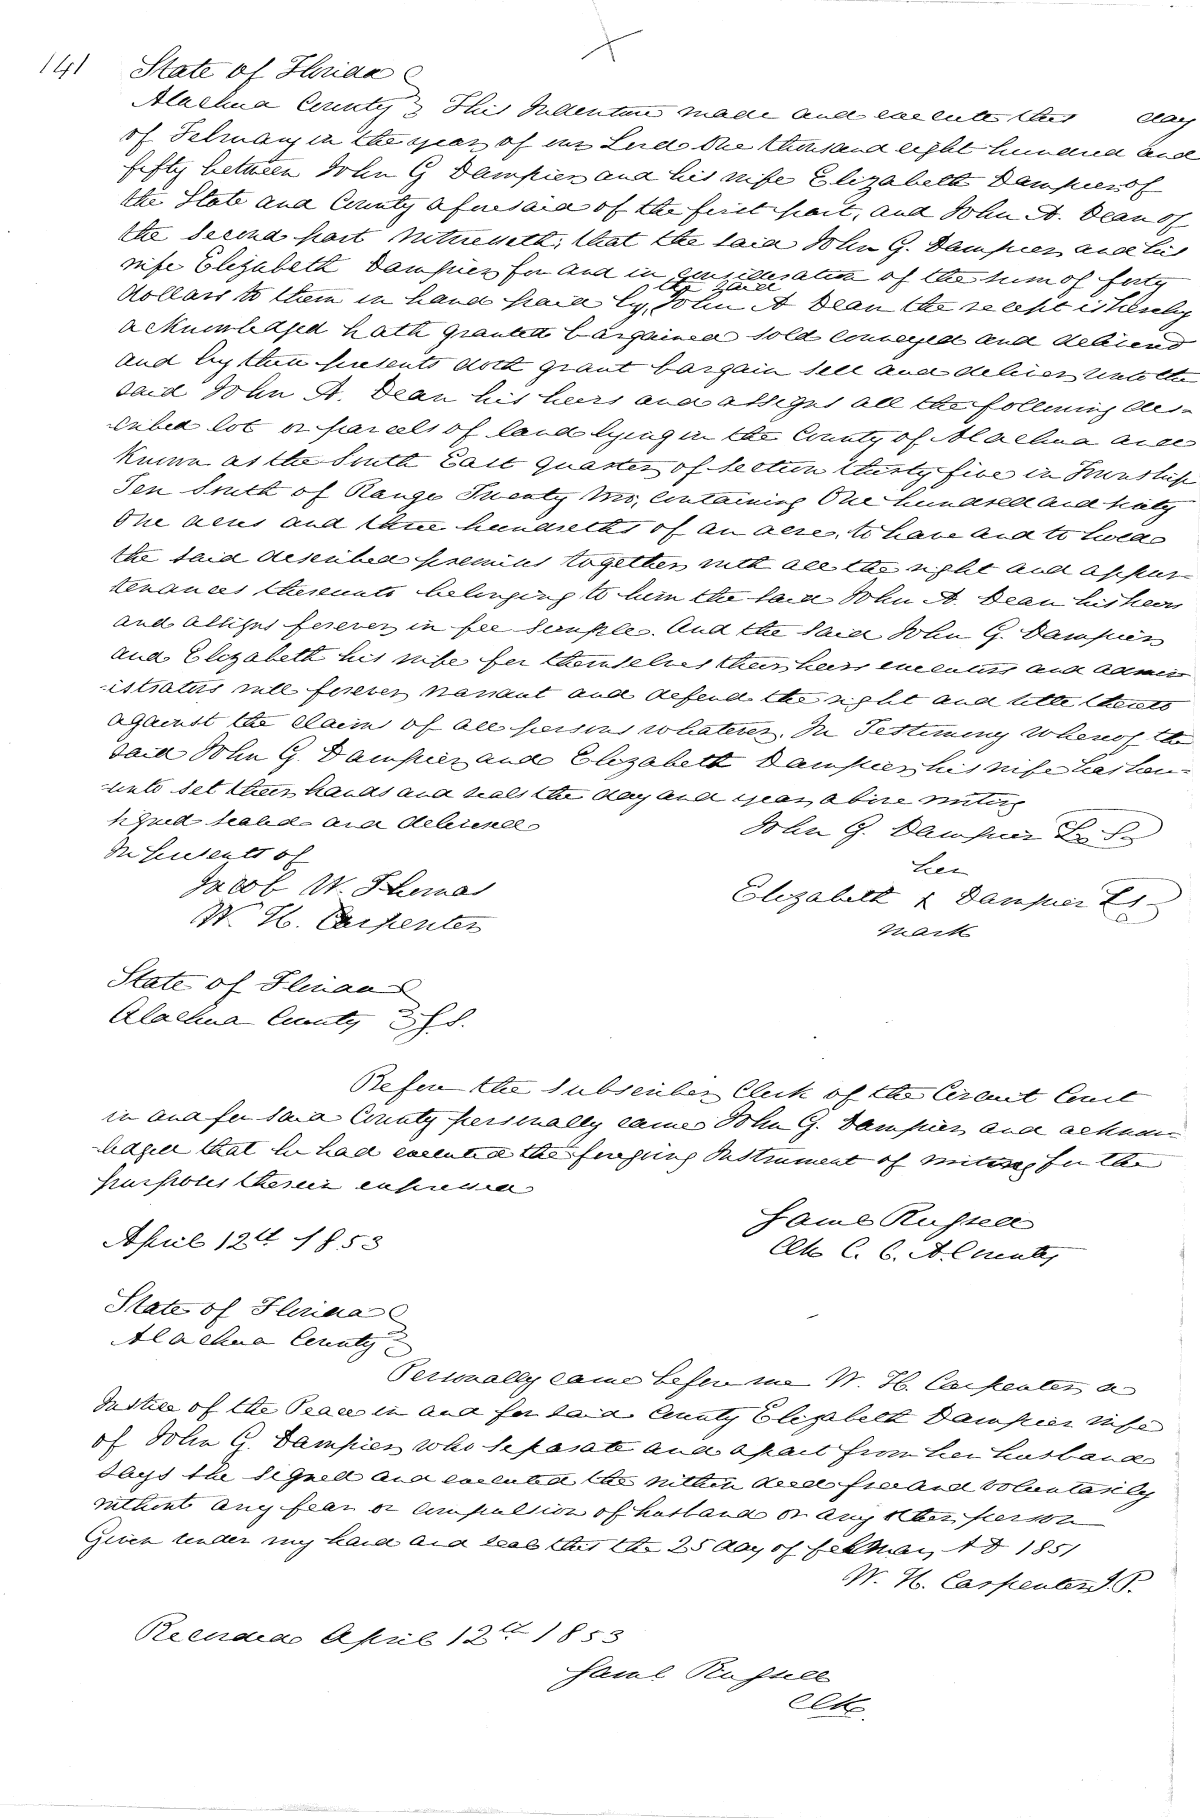 141 State of Florida
Alachua County } This Indenture made and execute this day
of February in the year of our Lord One thousand eight hundred and
fifty between John G Dampier and his wife Elizabeth Dampier of
the State and County aforesaid of the first part, and John A. Dean of
the Second part Witnesseth, that the said John G. Dampier and his
wife Elizabeth Dampier for and in consideration of the sum of forty
dollars to them in hand paid by, the said John A Dean the receipt is hereby
acknowledged hath granted bargained sold conveyed and delivered
and by these presents doth grant bargain sell and deliver unto the
said John A. Dean his heirs and assigns all the following des-
cribed lot or parcels of land lying in the County of Alachua and
Known as the South East quarter of Section thirty five in Township
Ten South of Range Twenty two, containing One hundred and sixty
One acres and three hundreths of an acre, to have and to hold
the said described premises together with all the right and appur-
tenances thereunto belonging to him the said John A. Dean his heirs
and assigns forever in fee simple. And the said John G. Dampier
and Elizabeth his wife for themselves their heirs executors and admin
istrators will forever warrant and defend the right and title thereto
against the claim of all persons whatever. In Testimony Whereof the
said John G. Dampier and Elizabeth Dampier his wife has here-
unto set their hands and seals the day and year above writing
signed sealed and delivered
In presents of
John G. Dampier L. S.
Jacob W. Thomas
W. H. Carpenter
her
Elizabeth x Dampier LS
mark
State of Florida
Alachua County } S.S.
Before the Subscriber Clerk of the Circuit Court
in and for said County personally came John G. Dampier and acknow-
ledged that he had executed the foregoing Instrument of writing for the
purposes therein expressed
April 12th 1853
Saml Russell
Clk C. C. A. County
State of Florida
Alachua County }
Personally came before me W. H. Carpenter a
Justice of the Peace in and for said County Elizabeth Dampier wife
of John G. Dampier who separate and apart from her husband
says she signed and executed the within deed free and voluntarily
without any fear or compulsion of husband or any other person
Given under my hand and seal this the 25 day of february A D 1851
W. H. Carpenter J. P.
Recorded April 12th 1853
Saml Russell
Clk.